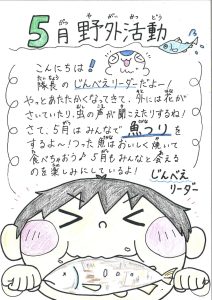 5月野外活動
こんにちは！
隊長のじんべえリーダーだよー！
やっとあたたかくなってきて、外には花が
さいていたり、虫の声が聞こえたりするね！
さて、5月はみんなで魚つりを
するよ〜！つった魚はおいしく焼いて
食べちゃおう♪5月もみんなと会える
のを楽しみにしているよ！
じんべえ
リーダー